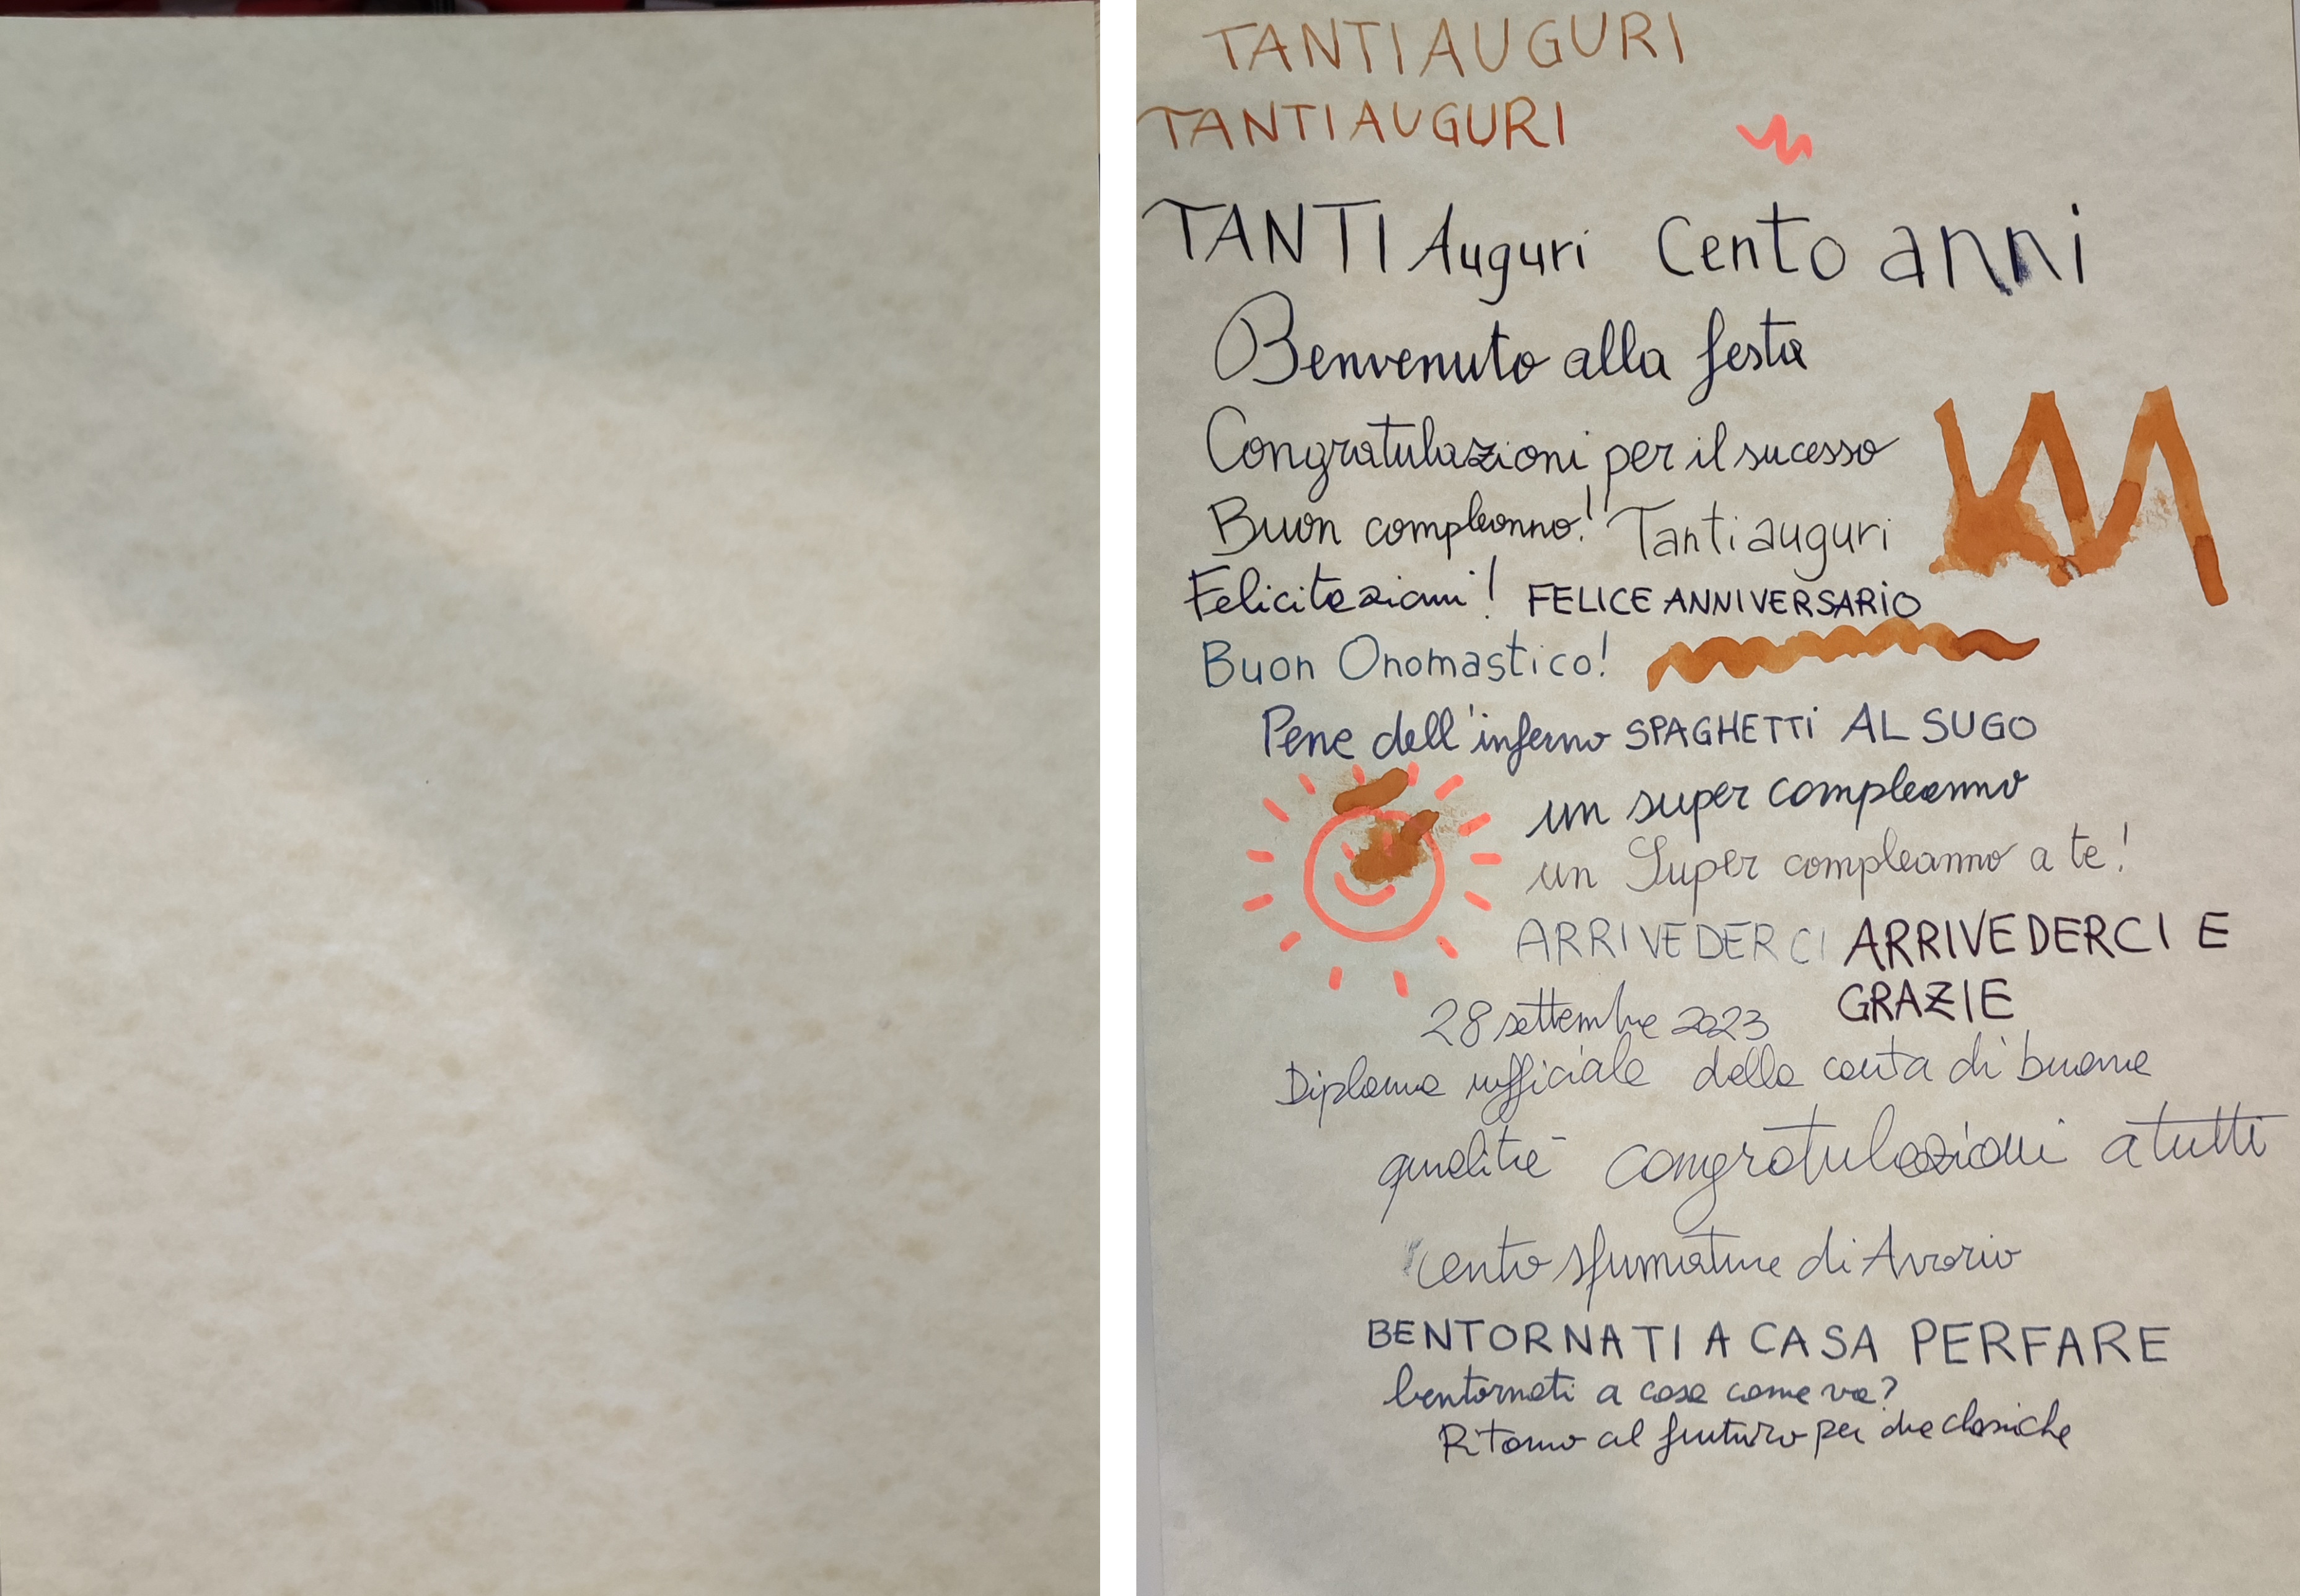 TANTI AUGURI
TANTI AUGURI
TANTI Auguri Cento anni
Benvenuto alla festa
Congratulazioni per il sucesso
Buon compleanno! Tanti auguri
Felicitazioni! FELICE ANNIVERSARIO
Buon Onomastico!
Pene dell'inferno SPAGHETTI AL SUGO
un super compleanno
un Super compleanno a te!
ARRIVEDERCI ARRIVEDERCI E
GRAZIE
28 settembre 2023
Diploma ufficiale della carta di buona
qualità congratulazioni a tutti
Cento sfumature di Avorio
BENTORNATI A CASA PERFARE
bentornati a casa come va?
Ritorno al fuuturo per due classiche